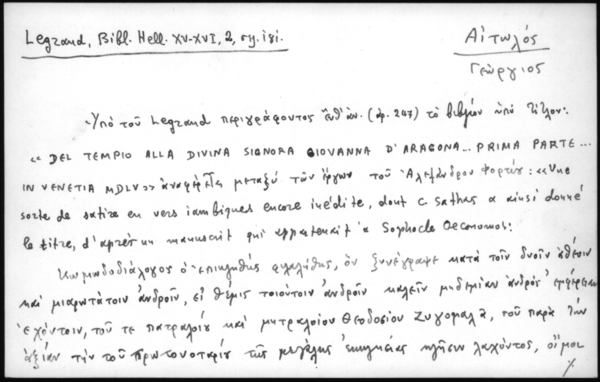 Legrand, Bibl. Hell. XV-XVI, 2, ση. ιβι.
Αἰτωλός
Γεώργιος
Ὑπὸ τοῦ Legrand περιγράφοντος ἔνθ' ἀν. (ἀρ. 247) τὸ βιβλίον ὑπὸ τίτλον:
« DEL TEMPIO ALLA DIVINA SIGNORA GIOVANNA D'ARAGONA... PRIMA PARTE...
IN VENETIA MDLV» ἀναφέρεται μεταξὺ τῶν ἔργων τοῦ Ἀλεξάνδρου Φορτίου: «Une
sorte de satire en vers iambiques encore inédite, dont C Sathas a ainsi donné
le titre, d'après un manuscrit qui appartenait à Sophocle Oeconomos:
Κωμωδοδιάλογος ὁ ἐπικληθεὶς φιλαλήθης, ὃν ξυνέγραψε κατὰ τοῖν δυοῖν ἀθέοιν
καὶ μιαρωτάτοιν ἀνδροῖν, εἰ θέμις τοιούτοιν ἀνδροῖν καλεῖν μηδεμίαν ἀνδρὸς ἐμφέρειαν
ἐχόντοιν, τοῦ τε πατραλοίου καὶ μητραλοίου Θεοδοσίου Ζυγομαλᾶ, τοῦ παρὰ τὴν
ἀξίαν τὴν τοῦ πρωτονοταρίου τῆς μεγάλης ἐκκλησίας κλῆσιν λαχόντος, οἴμοι